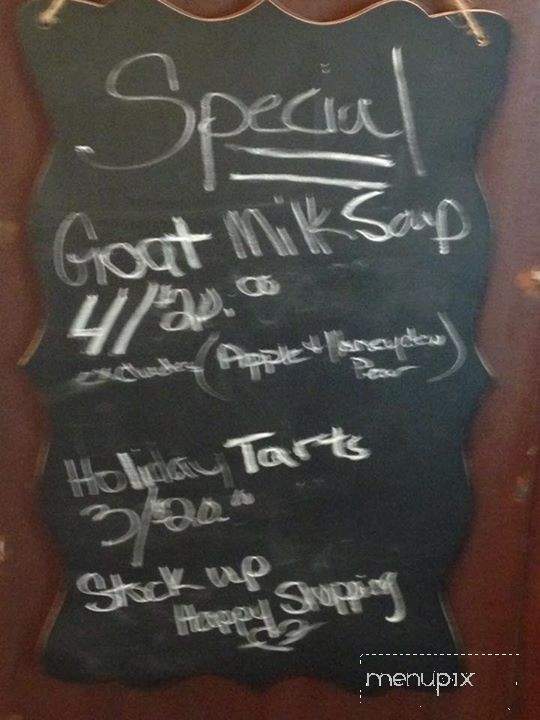 Special
Goat Milk Soap
4/$20.00
excludes (Apple + Honeydew
Pear)
Holiday Tarts
3/$20.00
Stock up
Happy Shopping
menupix